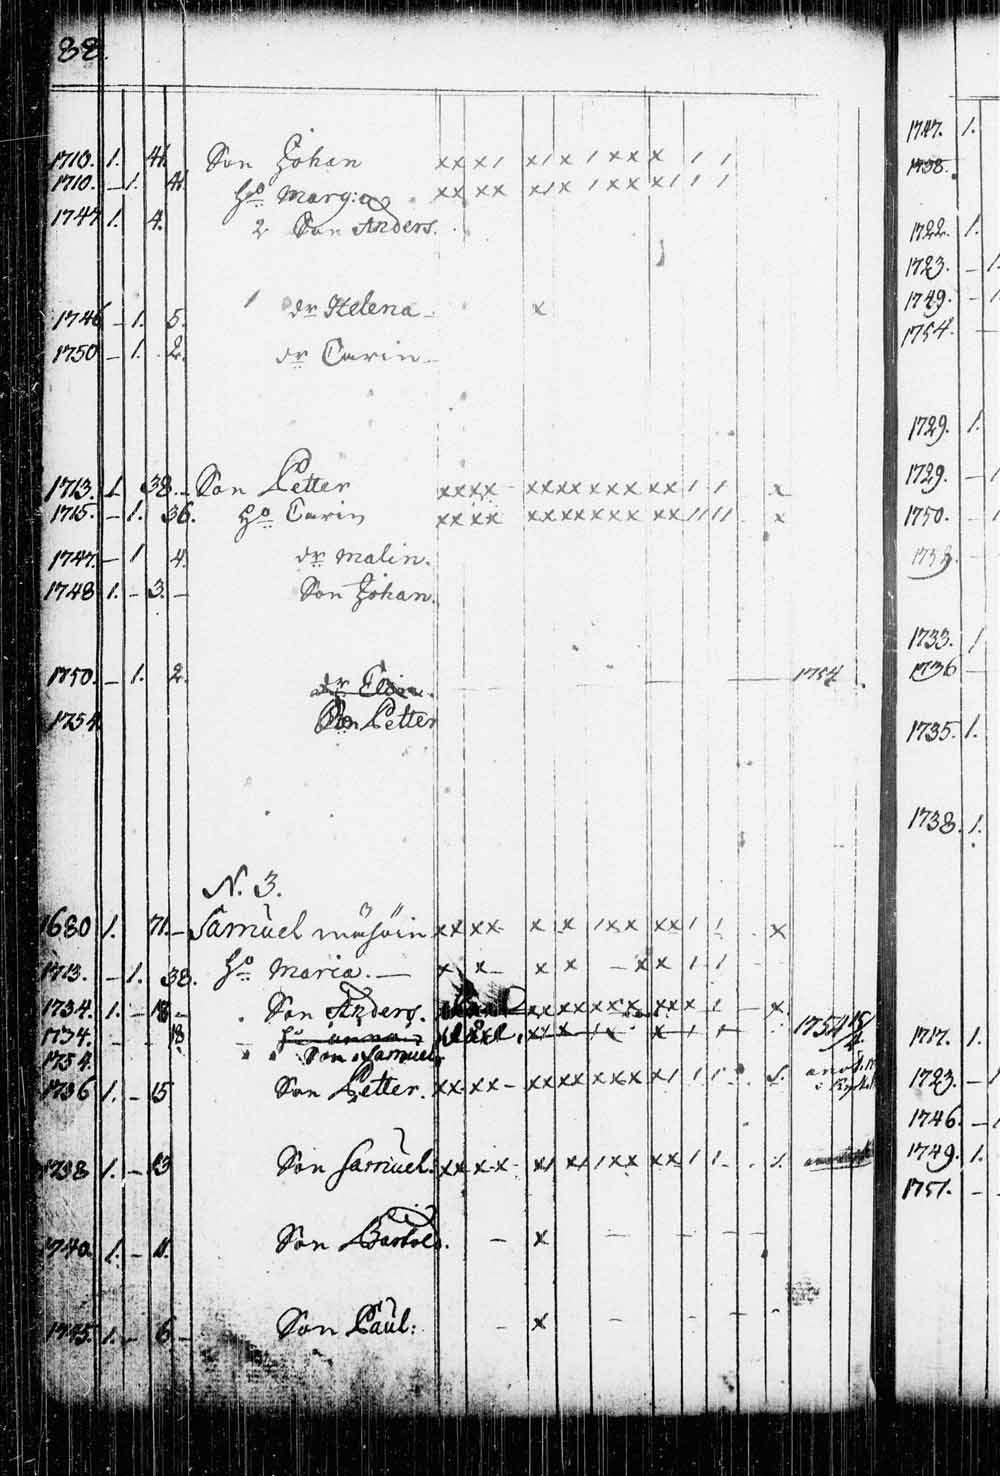 88.
1710. 1. 41. Son Johan xx x1 x1 x 1 xx x 1 1
1710. – 1. 41. Ho Marg:a xx xx x1x 1 xx x1 1 1
1747 1. 4. 2 Son Anders.
1746 – 1. 5. 1 dr Helena – x
1750 – 1. 2. dr Carin –
1713. 1. 38. – Son Petter xxxx – xxxx xxx xx 1 1 x
1715. – 1. 36. Ho Carin xx xx xxxxxxx xx 11 11 x
1747. – 1 4. dr Malin.
1748 1. – 3. – Son Johan.
1750. – 1. 2. dr 1754
1754 Son Petter
N. 3.
1680 1. 71. – Samuel xx xx x x 1xx xx1 1 x
1713. – 1. 38. Ho Maria. – x x – x x – xx 1 1 –
1734. 1. – 18 – Son Anders. x
1734. – 18. Ho Anna 1754
1754. Son Samuel
1736 1. – 15 Son Petter. xx xx – xxxx xxx x1 1 1
1738 1. – 13 Son Samuel. xx x x x1 x1 1xx xx 1 1
1740 1. – 11. Son Bartold. – x – – – –
1745. 1. – 6. – Son Paul: – x – – –
1747. 1.
1738.
1722. 1.
1723. – 1.
1749. – 1
1754. –
1729. 1.
1729. – 1
1750. – 1
1733. 1
1736 –
1735. 1.
1738. 1.
1717. 1.
1723. – 1
1746. – 1
1749. 1.
1751. –